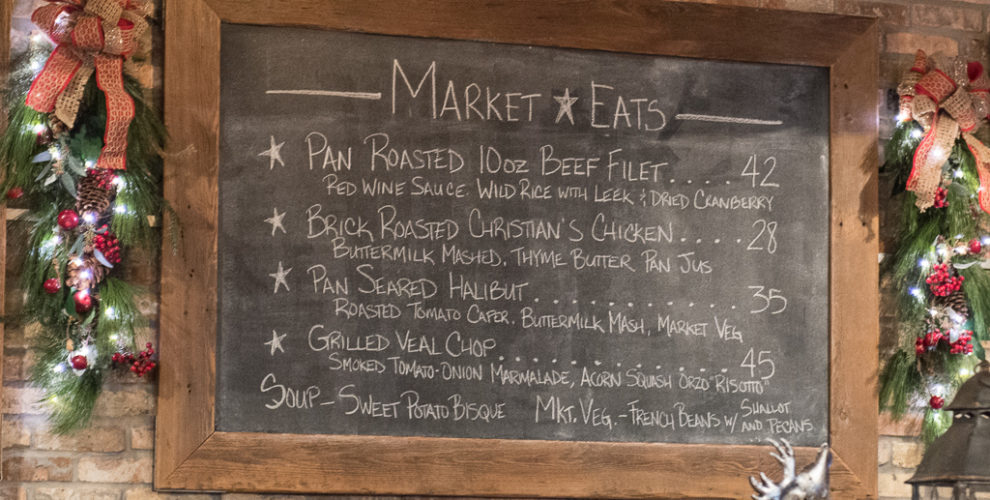 Market ★ Eats
★ Pan Roasted 10oz Beef Filet.....42
Red Wine Sauce. Wild Rice with Leek & Dried Cranberry
★ Brick Roasted Christian's Chicken....28
Buttermilk Mashed, Thyme Butter Pan Jus
★ Pan Seared Halibut..............35
Roasted Tomato Caper. Buttermilk Mash, Market Veg
★ Grilled Veal Chop................45
Smoked Tomato-Onion Marmalade, Acorn Squash Orzo "Risotto"
Soup - Sweet Potato Bisque Mkt. Veg. - French Beans w/ Shallot and Pecans